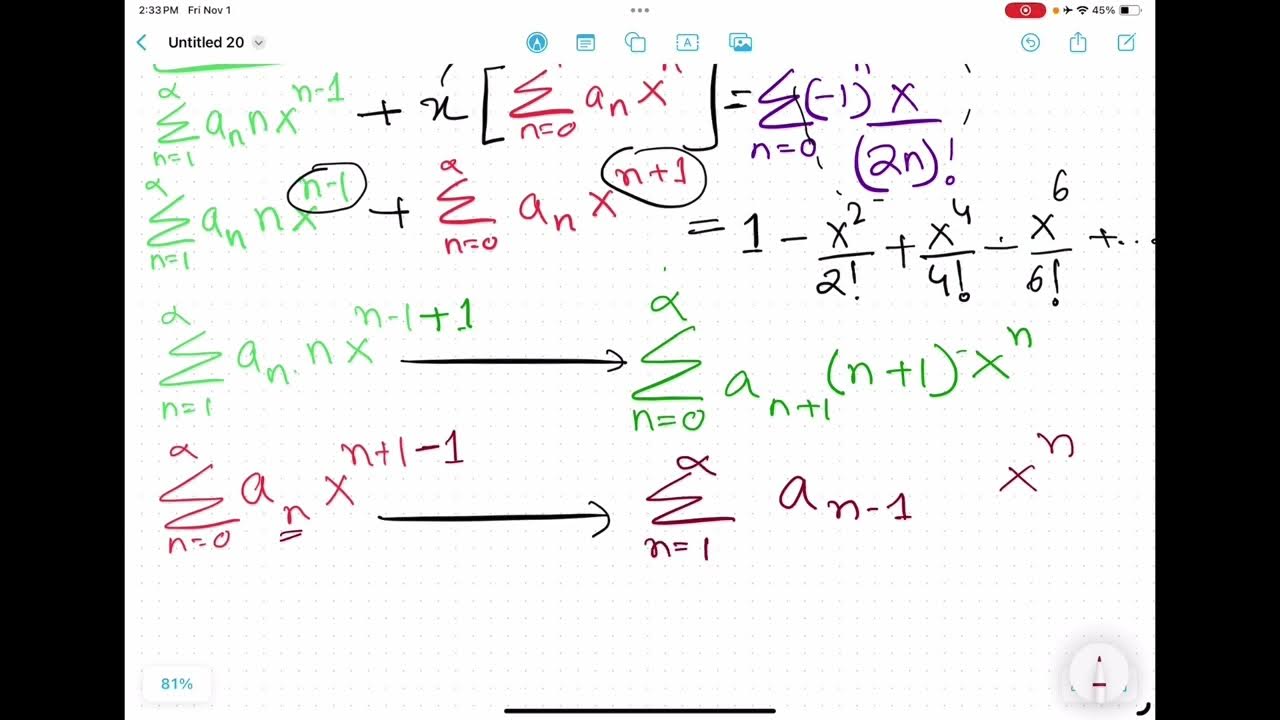 2:33 PM Fri Nov 1
45%
Untitled 20
∑_{n=1}^{∝} a_n n x^{n-1} + x [ ∑_{n=0} a_n x^n ] = ∑_{n=0} (-1)^n x / (2n)!
∑_{n=1}^{∝} a_n n x^{n-1} + ∑_{n=0}^{∝} a_n x^{n+1} = 1 - x^2/2! + x^4/4! - x^6/6! + ...
∑_{n=1}^{∝} a_n . n x^{n-1+1} → ∑_{n=0}^{∝} a_{n+1} (n+1) x^n
∑_{n=0}^{∝} a_n x^{n+1-1} → ∑_{n=1}^{∝} a_{n-1} x^n
81%